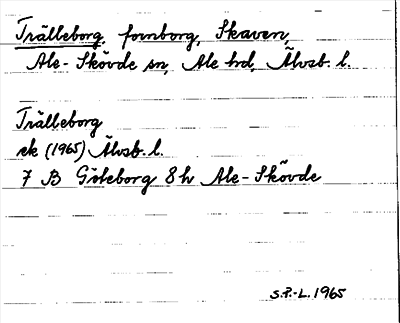 Trälleborg, fornborg, Skaven,
Ale-Skövde sn, Ale hd, Älvsb. l.
Trälleborg
ek (1965) Älvsb. l.
7 B Göteborg 8h Ale-Skövde
S.P.-L. 1965